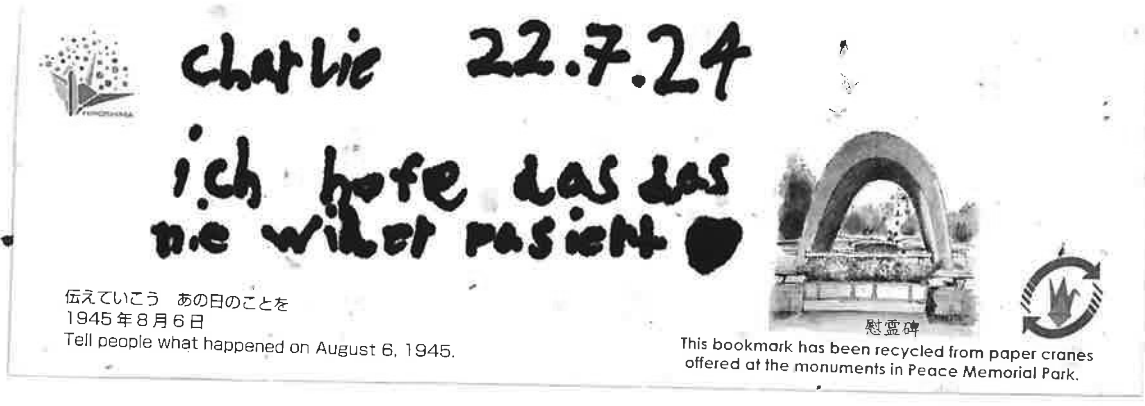 Charlie 22.7.24
ich hofe das das
nie wider pasiert
HIROSHIMA
伝えていこう あの日のことを
1945年8月6日
Tell people what happened on August 6, 1945.
慰霊碑
This bookmark has been recycled from paper cranes
offered at the monuments in Peace Memorial Park.